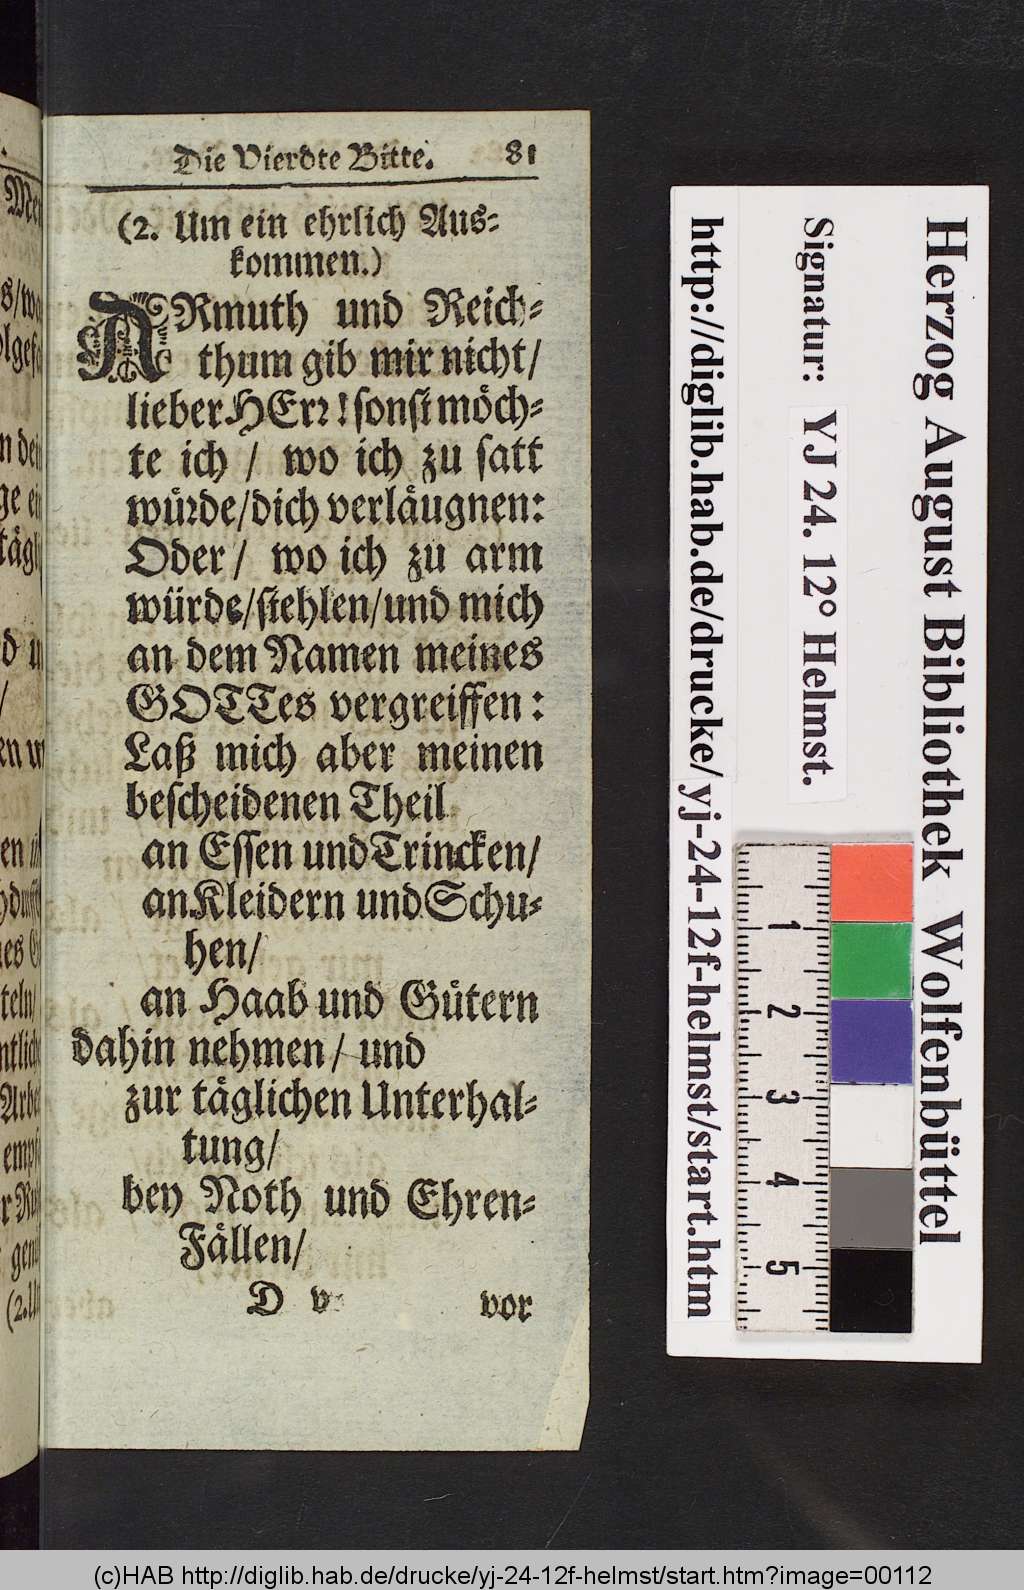 Die Vierdte Bitte. 81
(2. Um ein ehrlich Aus⸗
kommen.)
ARmuth und Reich⸗
thum gib mir nicht/
lieber HErr! sonst möch⸗
te ich / wo ich zu satt
würde/dich verläugnen:
Oder/ wo ich zu arm
würde/stehlen/und mich
an dem Namen meines
GOTTes vergreiffen:
Laß mich aber meinen
bescheidenen Theil
an Essen und Trincken/
an Kleidern und Schu⸗
hen/
an Haab und Gütern
dahin nehmen/ und
zur täglichen Unterhal⸗
tung/
bey Noth und Ehren⸗
Fällen/
D v
vor
Herzog August Bibliothek Wolfenbüttel
Signatur: YJ 24. 12° Helmst.
http://diglib.hab.de/drucke/yj-24-12f-helmst/start.htm
1
2
3
4
5
(c)HAB http://diglib.hab.de/drucke/yj-24-12f-helmst/start.htm?image=00112